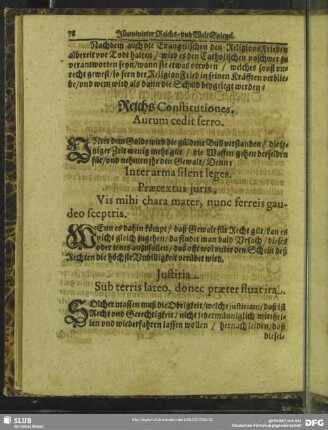 78 Reichs- vnd Welt-Spiegel.
Nachdem auch die Evangelischen den Religions Frieden
albereit vor Todt halten / wird es den Catholischen unschwer zu
verantworten seyn / wann sie etwas vorüben / welches sonst un-
recht gewest / so fern der Religion Fried in seinen Kräfften verblie-
be / und wem wird als dann die Schuld beygelegt werden
Reichs Constitutiones.
Aurum cedit ferro.
UNter dem Golde wird die güldene Bull verstanden / die je-
tziger Zeit wenig mehr gilt / die Waffen gehen derselben
für / und nehmen ihr den Gewalt / Denn:
Inter arma silent leges.
Prætextus juris.
Vis mihi chara mater, nunc ferreis gau-
deo sceptris.
WEnn es dahin kömpt / daß Gewalt für Recht gilt / kan es
nicht gleich zugehen / da findet man bald Ursach / dieses
oder jenes anzufallen / das offt wol unter dem Schein deß
Rechten die höchste Unbilligkeit verübet wird.
Justitia.
Sub terris lateo, donec præterfluat ira.
SOlcher massen muß die Obrigkeit / welche justitiam / daß ist
Recht und Gerechtigkeit / nicht jedermänniglich mitthei-
len und wiederfahren lassen wollen / hernach leiden / daß
diesel-
SLUB
Wir führen Wissen.
http://digital.slub-dresden.de/
gefördert von der
Deutschen Forschungsgemeinschaft
DFG